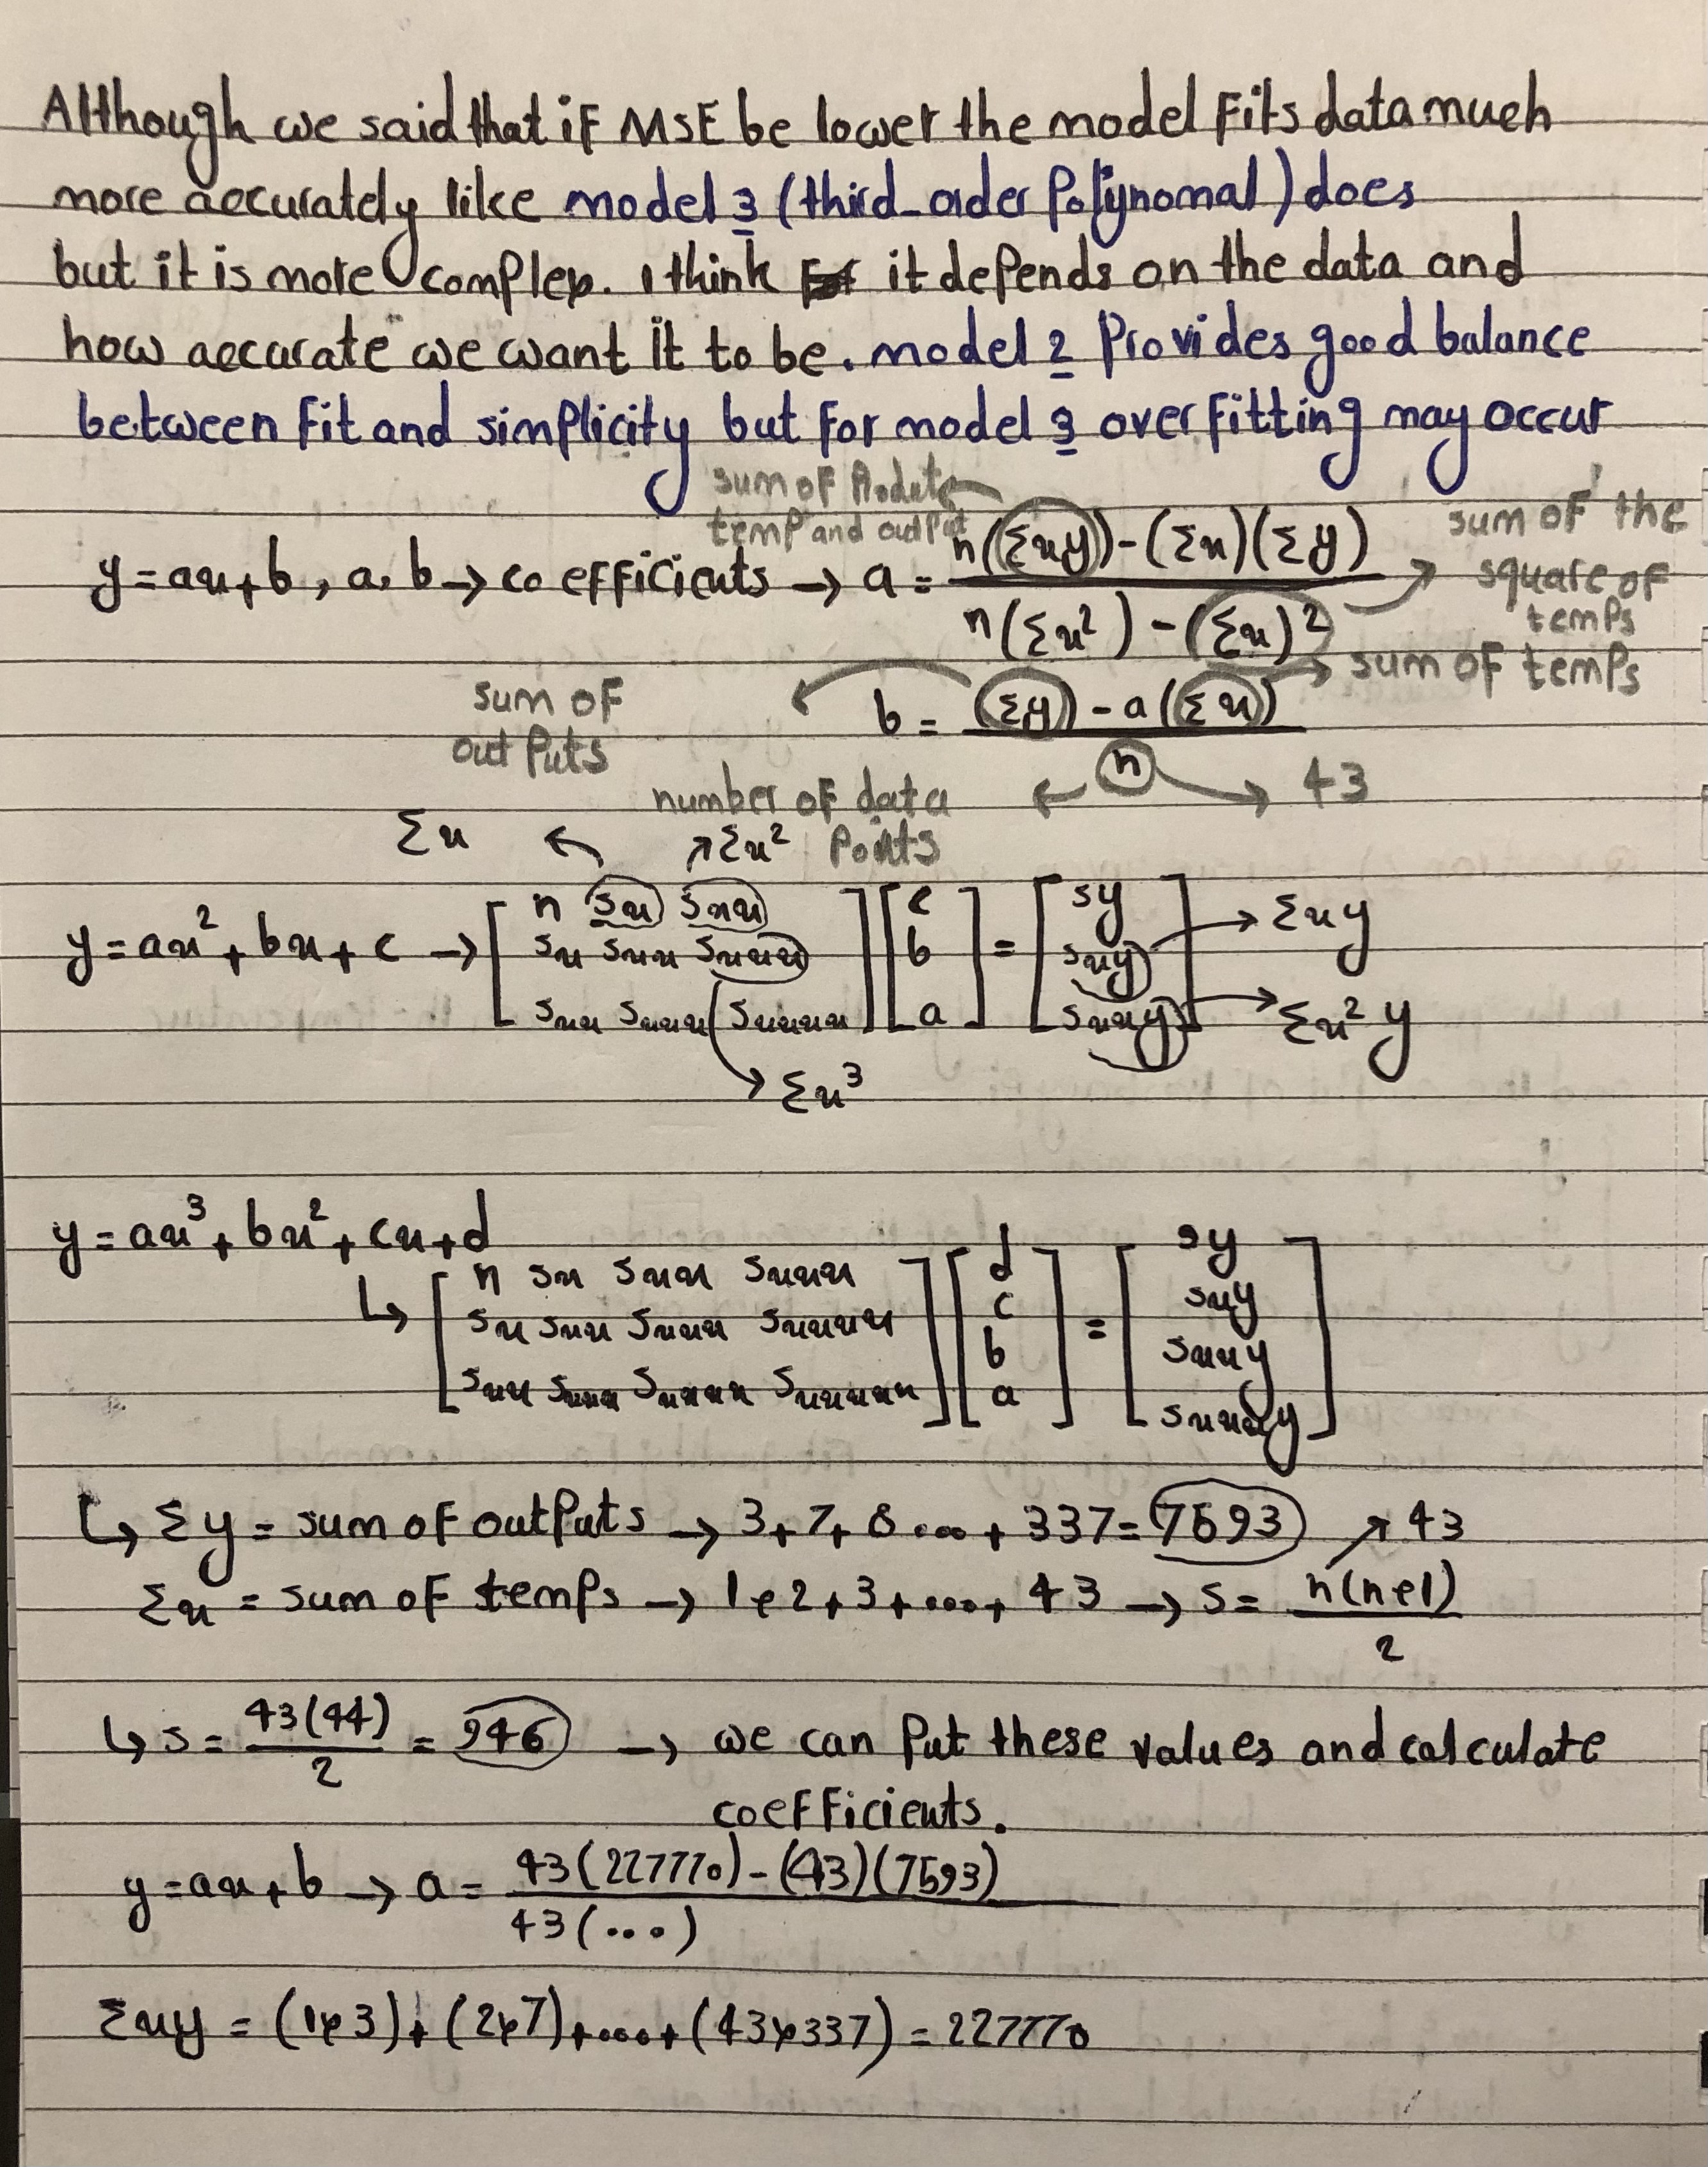 Although we said that if MSE be lower the model fits data much
more accurately like model 3 (third-order Polynomal) does
but it is more complex. I think it depends on the data and
how accurate we want it to be. model 2 Provides good balance
between fit and simplicity but for model 3 overfitting may occur
sum of
temp and output
y = ax + b , a, b → coefficients → a = n(Σxy) - (Σx)(Σy) / n(Σx²) - (Σx)²
sum of the
square of
temps
sum of temps
sum of
outputs
b = (Σy) - a(Σx) / n
number of data
Points
43
Σx
Σx²
y = ax² + bx + c → [ n sx sxx ] [ c ] = [ sy ]
sx sxx sxxx b sxy → Σxy
sxx sxxx sxxxx a sxxy → Σx²y
→ Σx³
y = ax³ + bx² + cx + d
↳ [ n sx sxx sxxx ] [ d ] = [ sy ]
sx sxx sxxx sxxxx c sxy
sxx sxxx sxxxx sxxxxx b sxxy
a sxxxy
↳ Σy = sum of outputs → 3 + 7 + 8 ... + 337 = 7593 ↗ 43
Σx = sum of temps → 1 + 2 + 3 + .... + 43 → s = n(n+1) / 2
↳ s = 43(44) / 2 = 946 → we can Put these values and calculate
coefficients.
y = ax + b → a = 43(227770) - (43)(7593) / 43(...)
Σxy = (1×3) + (2×7) + .... + (43×337) = 227770